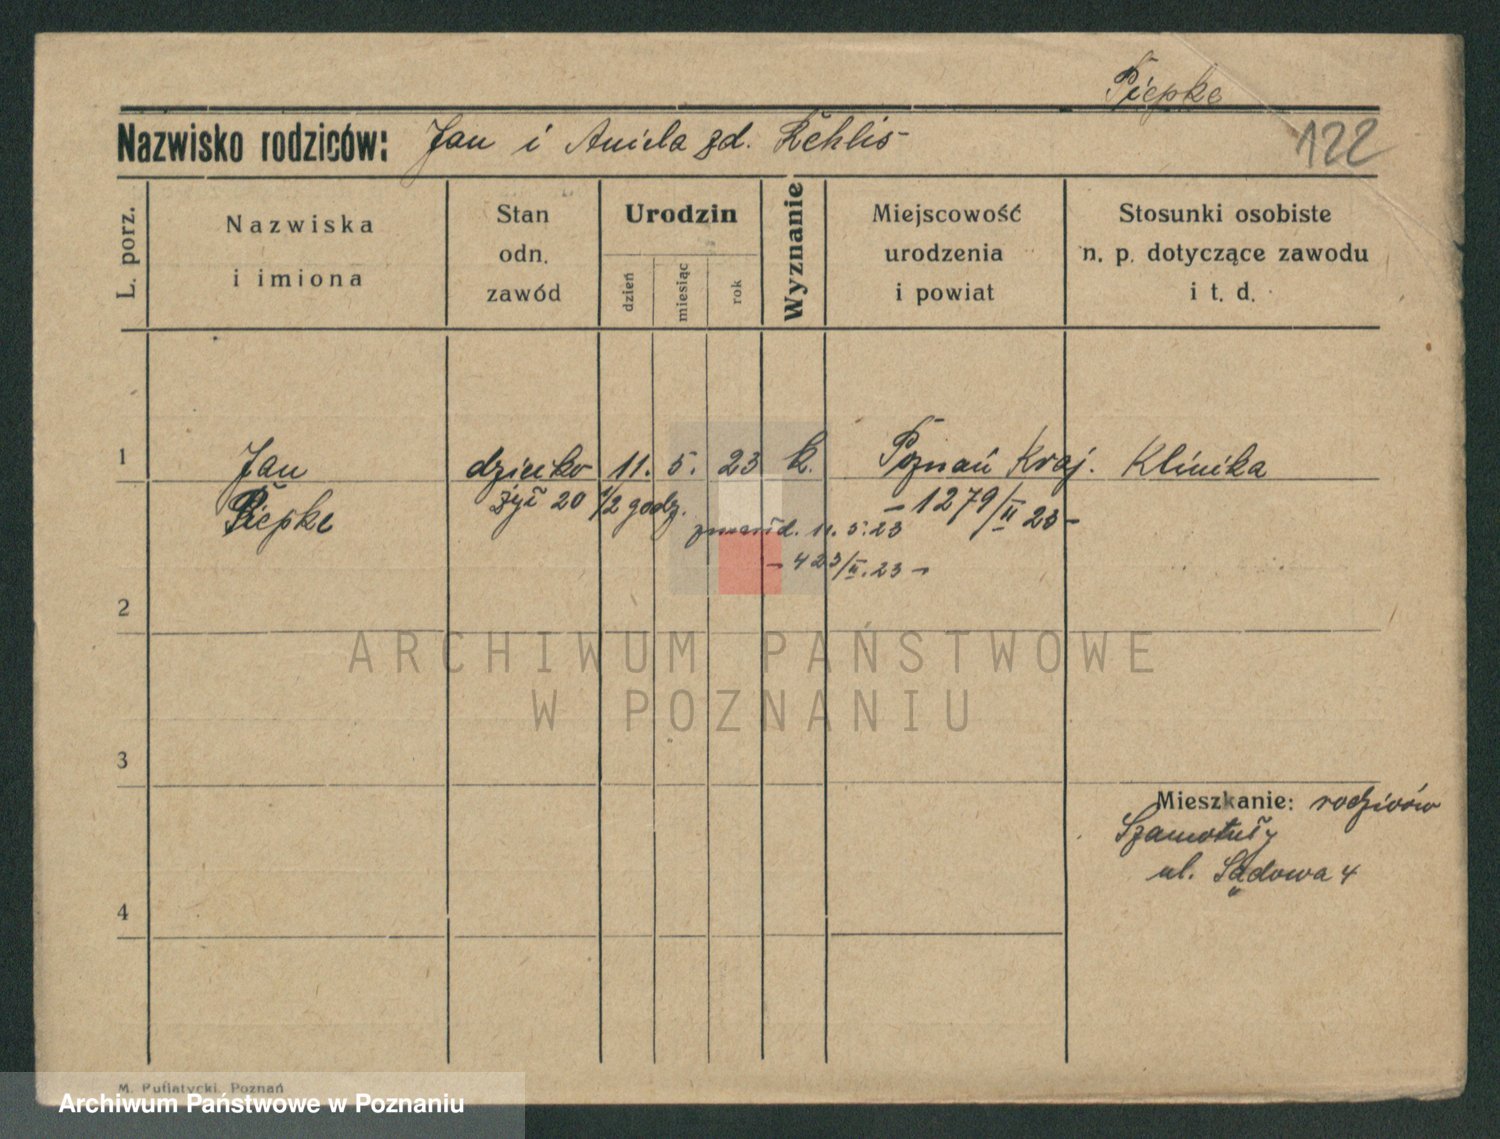 Piepke
Nazwisko rodziców: Jan i Aniela zd. Rehlis
122
L. porz.
Nazwiska
i imiona
Stan
odn.
zawód
Urodzin
dzień
miesiąc
rok
Wyznanie
Miejscowość
urodzenia
i powiat
Stosunki osobiste
n. p. dotyczące zawodu
i t. d.
1 Jan dziecko 11. 5. 23 k. Poznań Kraj. Klinika
Piepke żył 20 1/2 godz. - 1279/II 23 -
11. 5. 23
- 423/II. 23 -
2
ARCHIWUM PAŃSTWOWE
W POZNANIU
3
Mieszkanie: rodziców
Szamotuły
ul. Sądowa 4
4
M. Putiatycki, Poznań
Archiwum Państwowe w Poznaniu